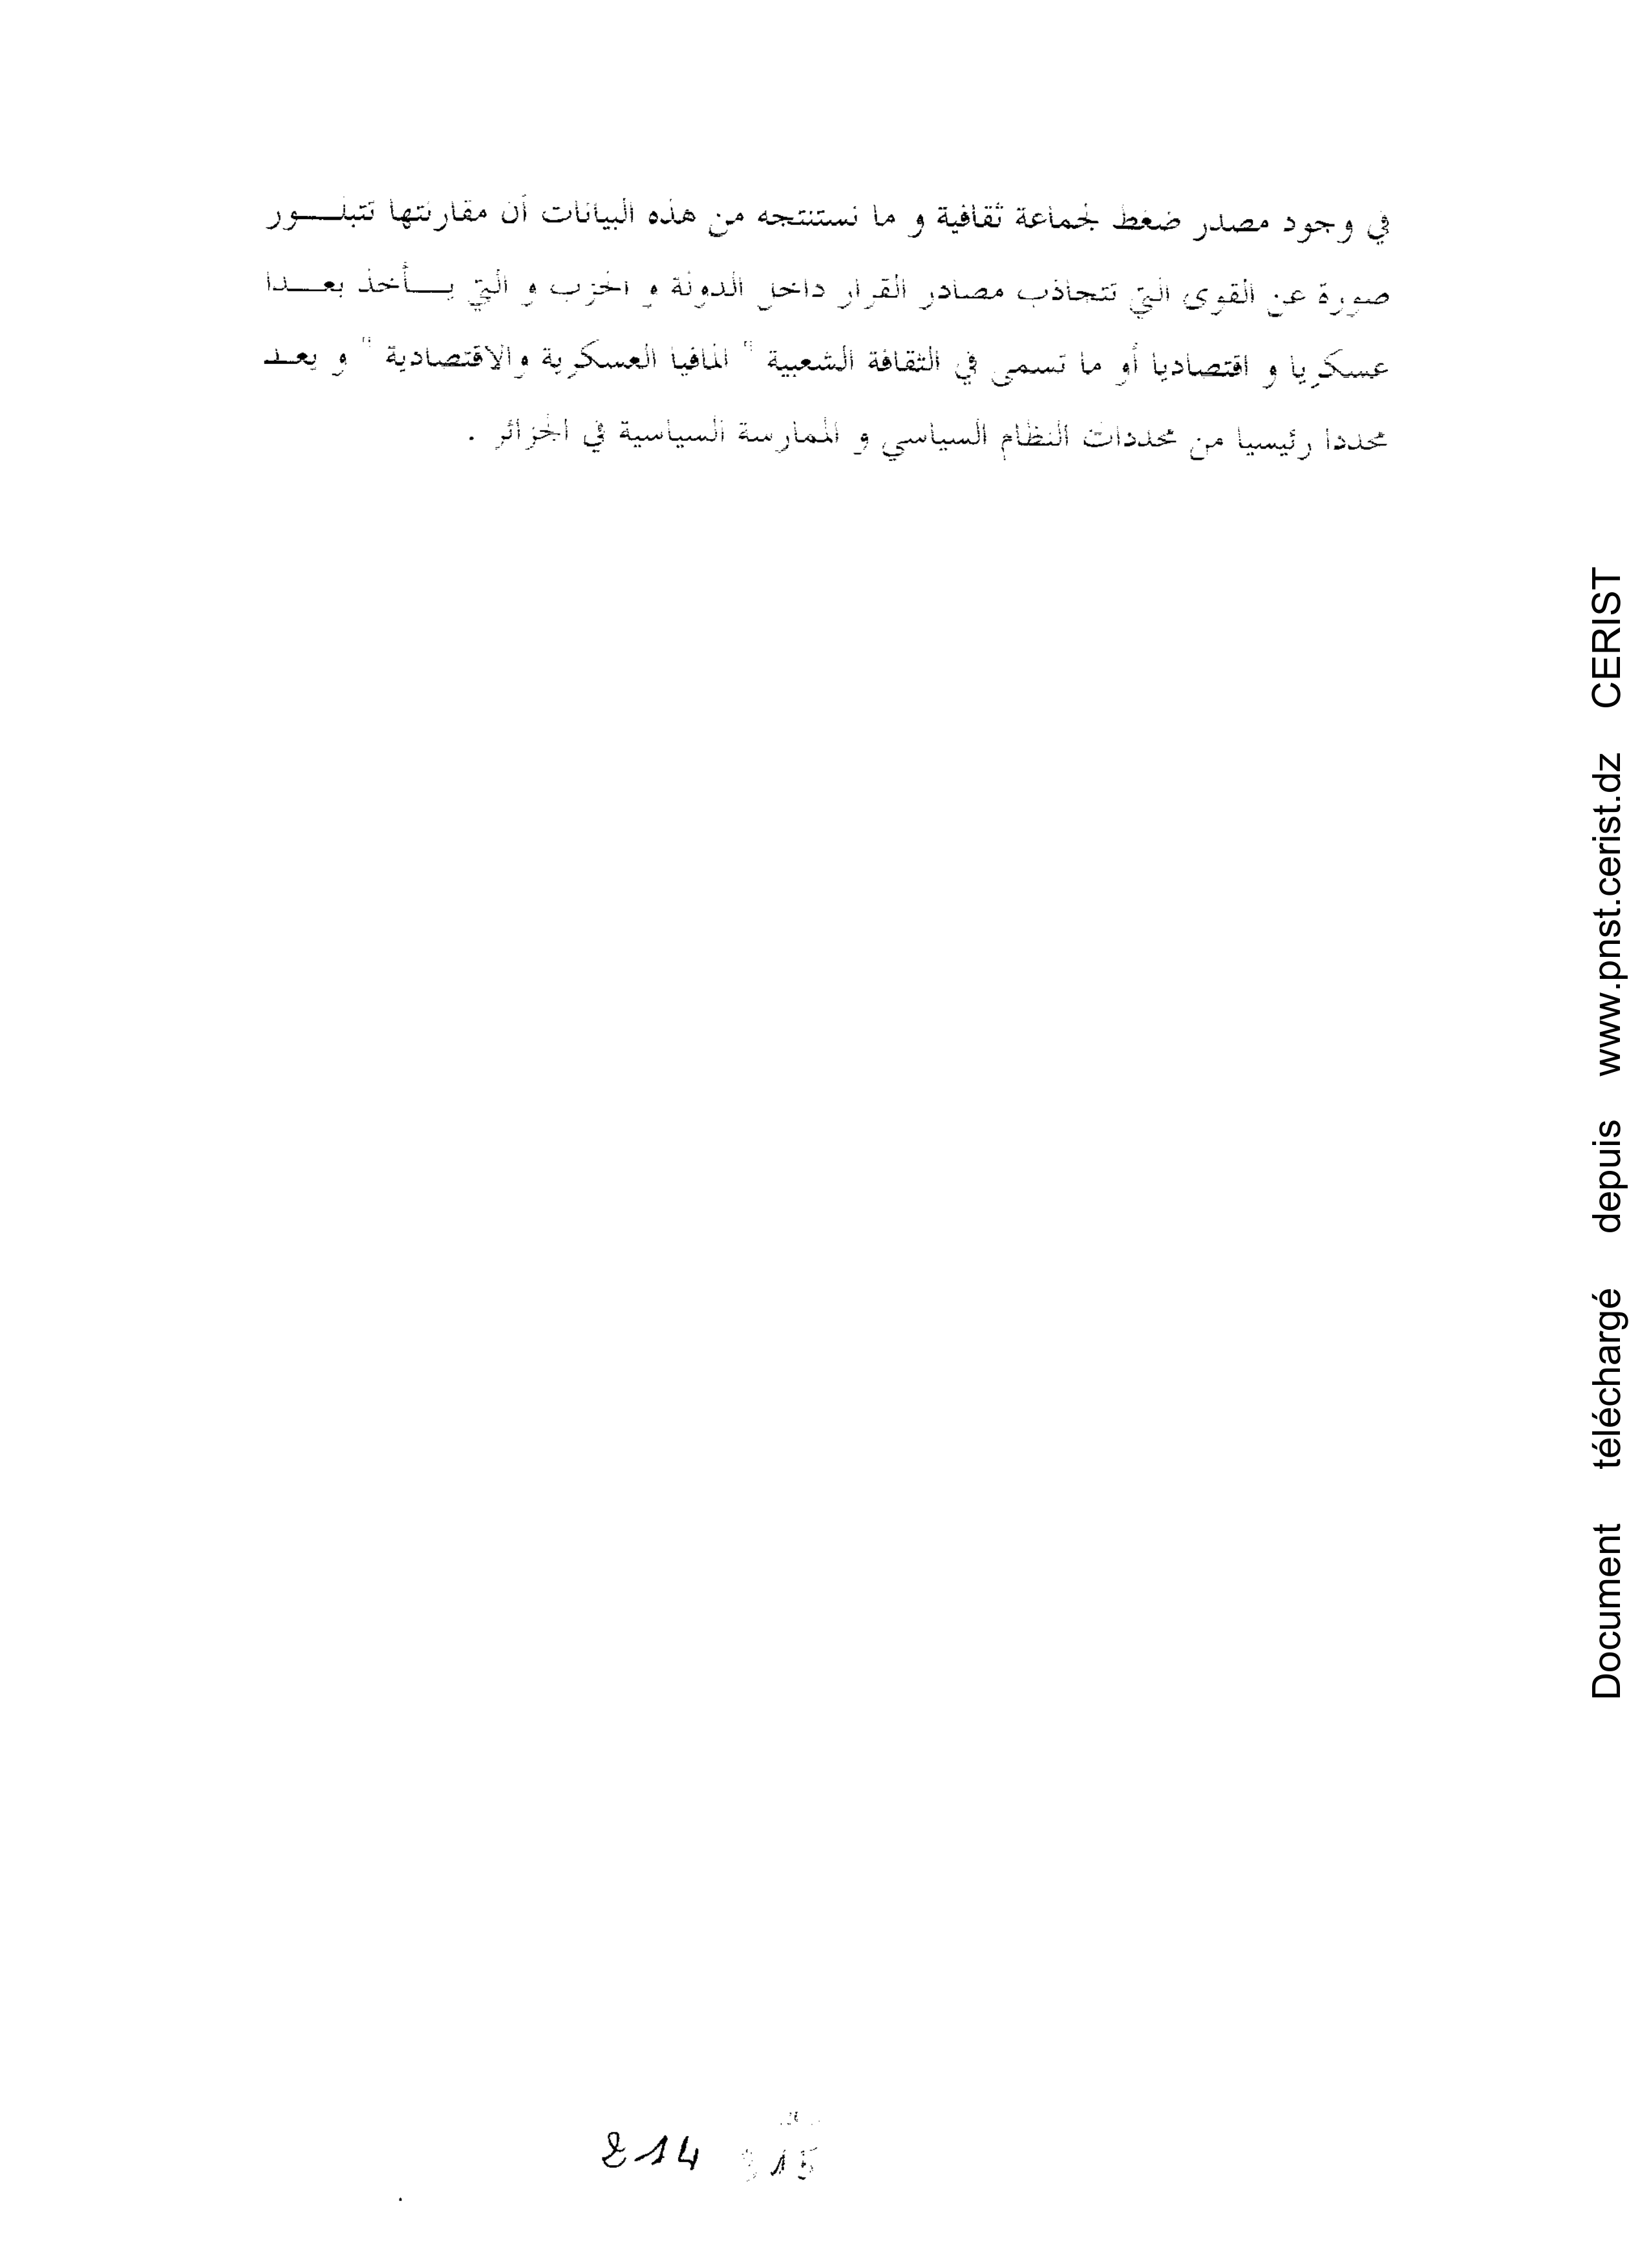 في وجود مصدر ضغط لجماعة ثقافية و ما نستنتجه من هذه البيانات أن مقارنتها تتبلـــور
صورة عن القوى التي تتجاذب مصادر القرار داخل الدولة و الحزب و التي يـــأخذ بعـــدا
عسكريا و اقتصاديا أو ما تسمى في الثقافة الشعبية " المافيا العسكرية والاقتصادية " و يعــد
محددا رئيسيا من محددات النظام السياسي و الممارسة السياسية في الجزائر .
Document téléchargé depuis www.pnst.cerist.dz CERIST
214 315